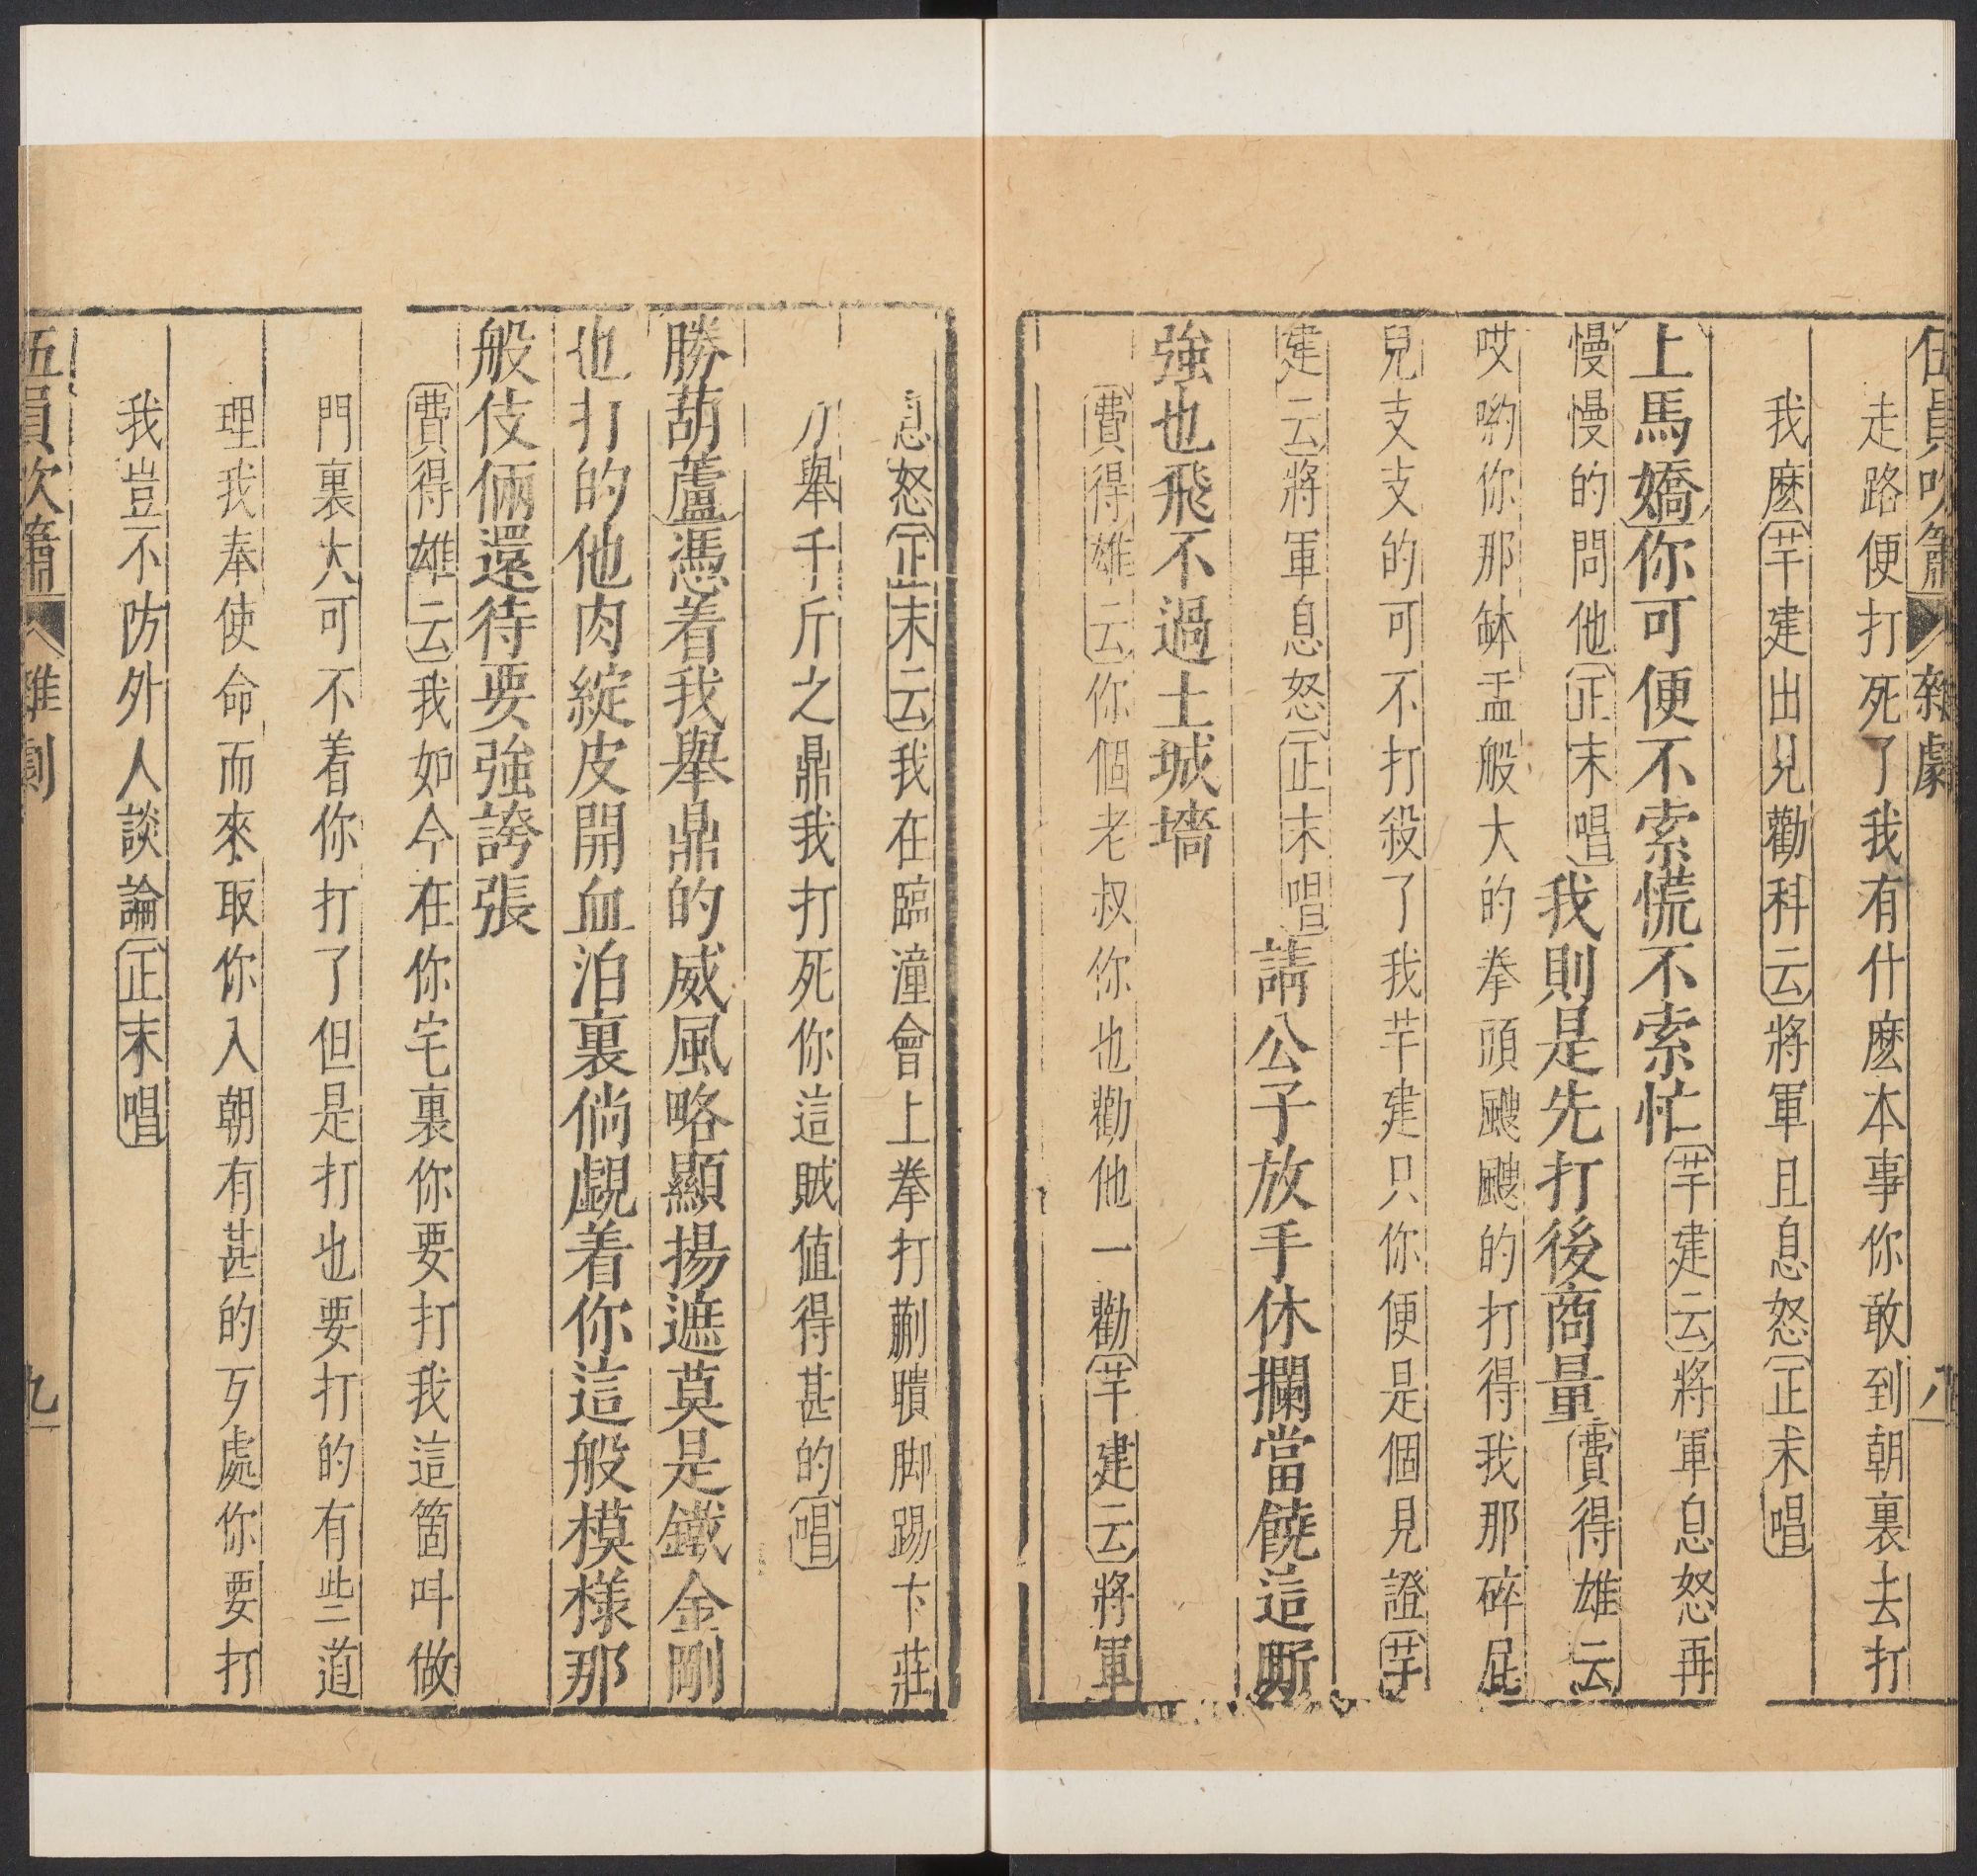 伍員吹簫 雜劇 八
走路便打死了我有什麽本事你敢到朝裏去打
我麽芊建出見勸科云將軍且息怒正末唱
上馬嬌你可便不索慌不索忙芊建云將軍息怒再
慢慢的問他正末唱我則是先打後商量費得雄云
哎喲你那缽盂般大的拳頭颼颼的打得我那碎屁
兒支支的可不打殺了我芊建只你便是個見證芊
建云將軍息怒正末唱請公子放手休攔當饒這厮
強也飛不過土城墻
費得雄云你個老叔你也勸他一勸芊建云將軍
息怒正末云我在臨潼會上拳打蒯聵脚踢卞莊
力舉千斤之鼎我打死你這賊值得甚的唱
勝葫蘆憑着我舉鼎的威風略顯揚遮莫是鐵金剛
也打的他肉綻皮開血泊裏倘覷着你這般模樣那
般伎倆還待要強誇張
費得雄云我如今在你宅裏你要打我這箇呌做
門裏大可不着你打了但是打也要打的有些道
理我奉使命而來取你入朝有甚的歹處你要打
我豈不防外人談論正末唱
伍員吹簫 雜劇 九